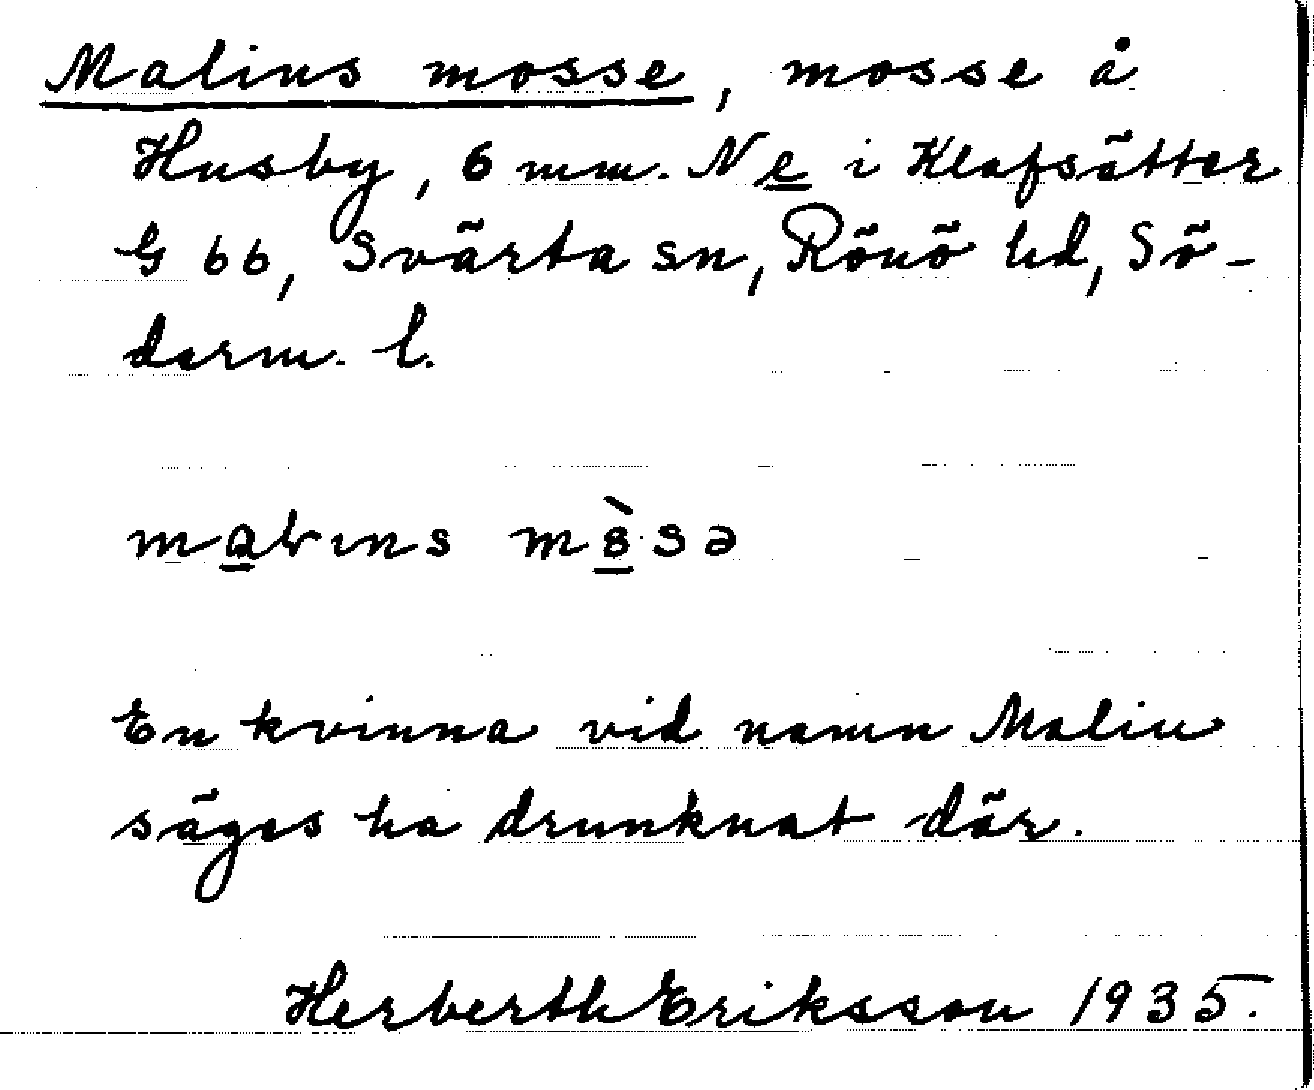 Malins mosse, mosse å
Husby, 6 mm. Ne i Klafsätter
G 66, Svärta sn, Rönö hd, Sö-
derm. l.
En kvinna vid namn Malin
säges ha drunknat där.
Herberth Eriksson 1935.